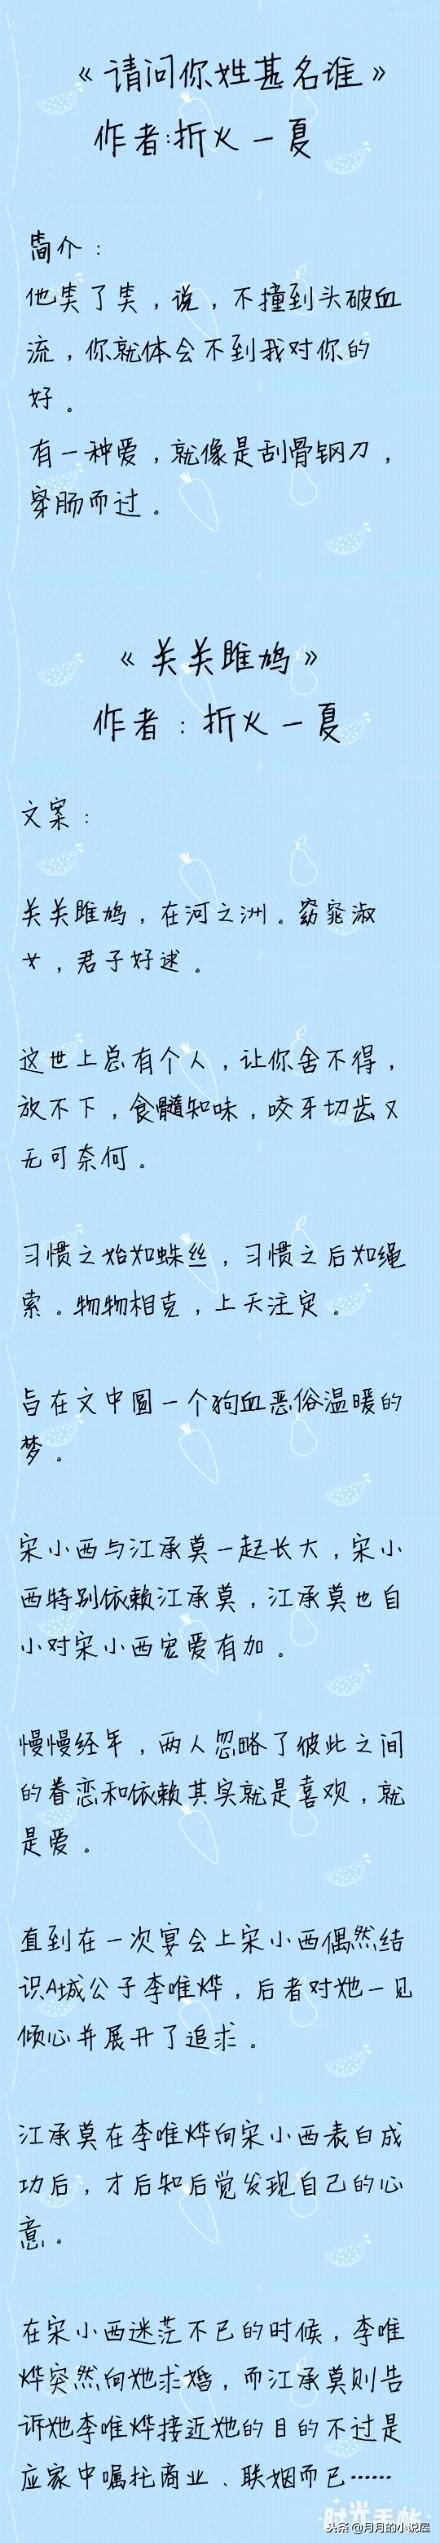 《请问你姓甚名谁》
作者:折火一夏
简介：
他笑了笑，说，不撞到头破血
流，你就体会不到我对你的
好。
有一种爱，就像是刮骨钢刀，
穿肠而过。
《关关雎鸠》
作者：折火一夏
文案：
关关雎鸠，在河之洲。窈窕淑
女，君子好逑。
这世上总有个人，让你舍不得，
放不下，食髓知味，咬牙切齿又
无可奈何。
习惯之始如蛛丝，习惯之后如绳
索。物物相克，上天注定。
旨在文中圆一个狗血恶俗温暖的
梦。
宋小西与江承莫一起长大，宋小
西特别依赖江承莫，江承莫也自
小对宋小西宠爱有加。
慢慢经年，两人忽略了彼此之间
的眷恋和依赖其实就是喜欢，就
是爱。
直到在一次宴会上宋小西偶然结
识A城公子李唯烨，后者对她一见
倾心并展开了追求。
江承莫在李唯烨向宋小西表白成
功后，才后知后觉发现自己的心
意。
在宋小西迷茫不已的时候，李唯
烨突然向她求婚，而江承莫则告
诉她李唯烨接近她的目的不过是
应家中嘱托商业、联姻而已……
时光手帐
头条 @月月的小说屋